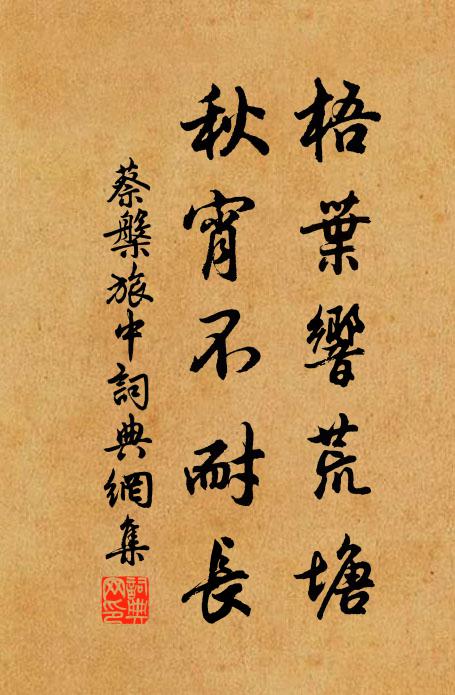 梧葉響荒塘
秋宵不耐長
蔡槃旅中詞典網集
詞典網印